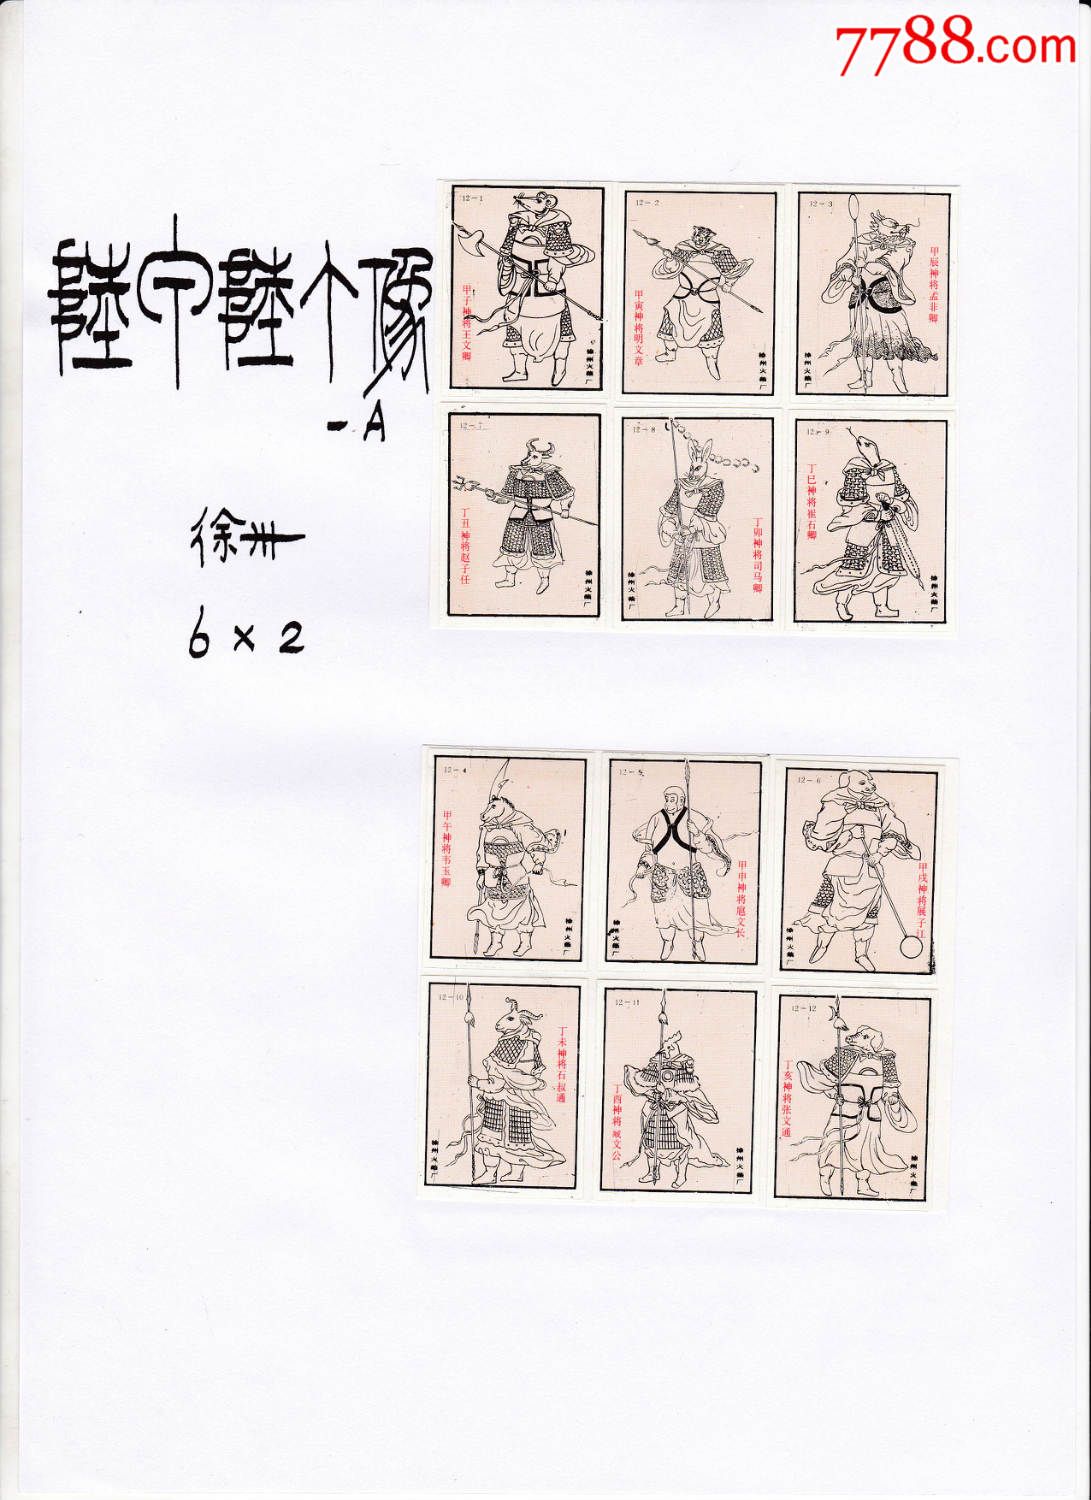 7788.com
陸甲陸丁像
-A
徐州
6×2
12-1
甲子神将王文卿
徐州火柴厂
12-2
甲寅神将明文章
徐州火柴厂
12-3
甲辰神将孟非卿
徐州火柴厂
12-7
丁丑神将赵子任
徐州火柴厂
12-8
丁卯神将司马卿
徐州火柴厂
12-9
丁巳神将崔石卿
徐州火柴厂
12-4
甲午神将韦玉卿
徐州火柴厂
12-5
甲申神将扈文长
徐州火柴厂
12-6
甲戌神将展子江
徐州火柴厂
12-10
丁未神将石叔通
徐州火柴厂
12-11
丁酉神将臧文公
徐州火柴厂
12-12
丁亥神将张文通
徐州火柴厂